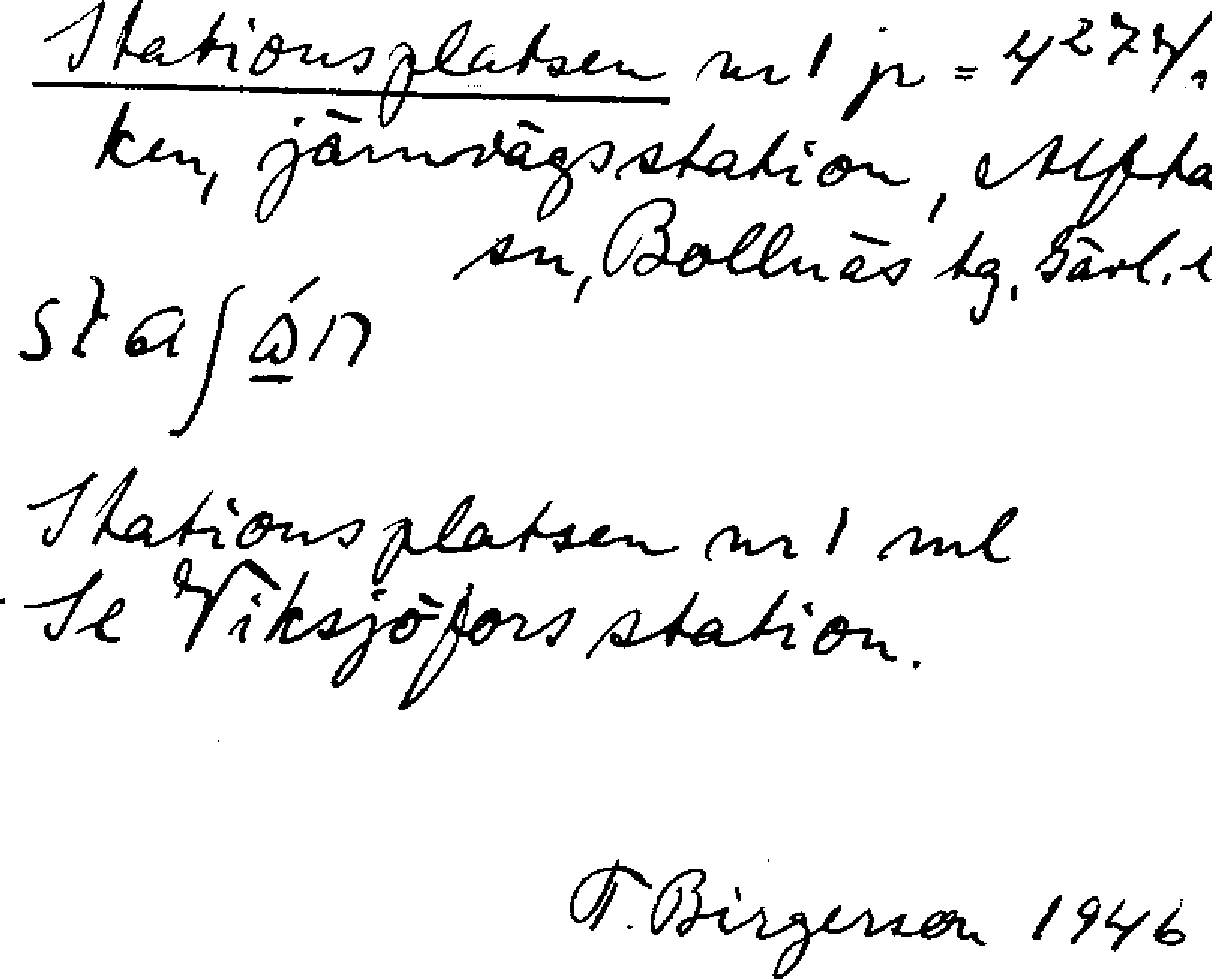 Stationsplatsen nr 1 jr =
ken, järnvägsstation, Alfta
sn, Bollnäs tg, Gävl. l
staʃón
Stationsplatsen nr 1 ml
Se Viksjöfors station.
F. Birgerson 1946